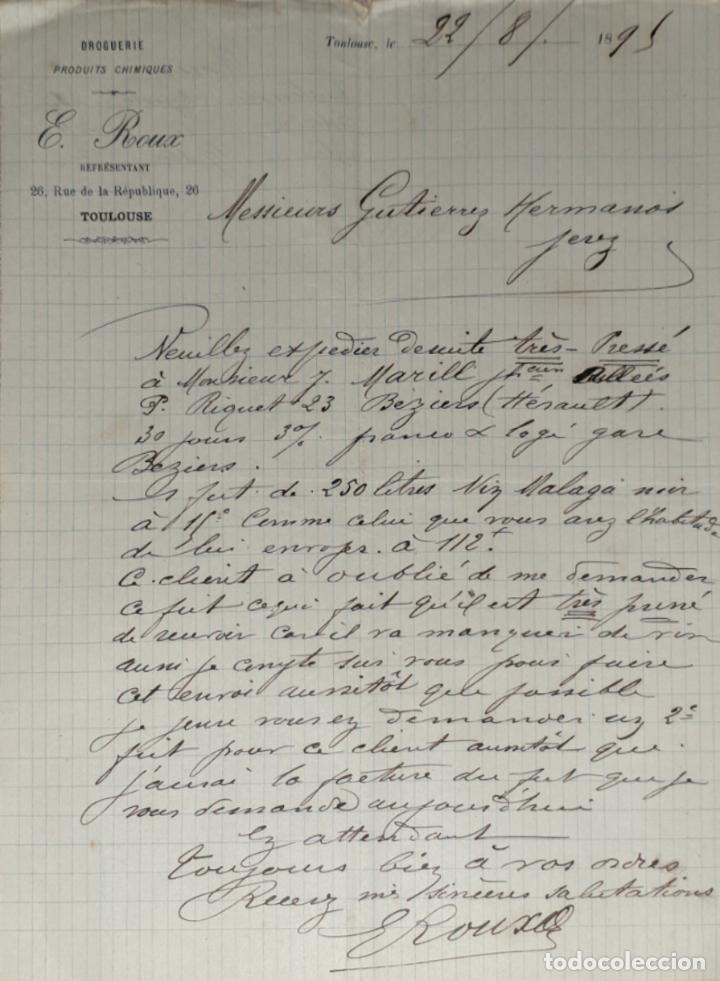 DROGUERIE
PRODUITS CHIMIQUES
E. Roux
REPRÉSENTANT
26, Rue de la République, 26
TOULOUSE
Toulouse, le 22/8/ 1895
Messieurs Gutierrez Hermanos
Jerez
Veuillez expedier desuite très-Pressé
à Monsieur J. Marill
P. Riquet 23 Beziers (Hérault).
30 jours 3% franco & logé gare
Beziers.
fut de 250 litres Vin Malaga noir
à 15° Comme celui que vous avez l'habitude
de lui envoyer à 112f
Ce client à oublié de me demander
ce fut cequi fait qu'il est très pressé
de recevoir car il va manquer de vin
aussi je compte sur vous pour faire
cet envoi aussitôt que possible
je vous demander un 2e
fut pour ce client aussitôt que
j'aurai la facture du fut que je
vous demande aujourd'hui
En attendant
Toujours bien à vos ordres
Recevez mes sincères salutations
E Roux
todocoleccion
todocoleccion.net